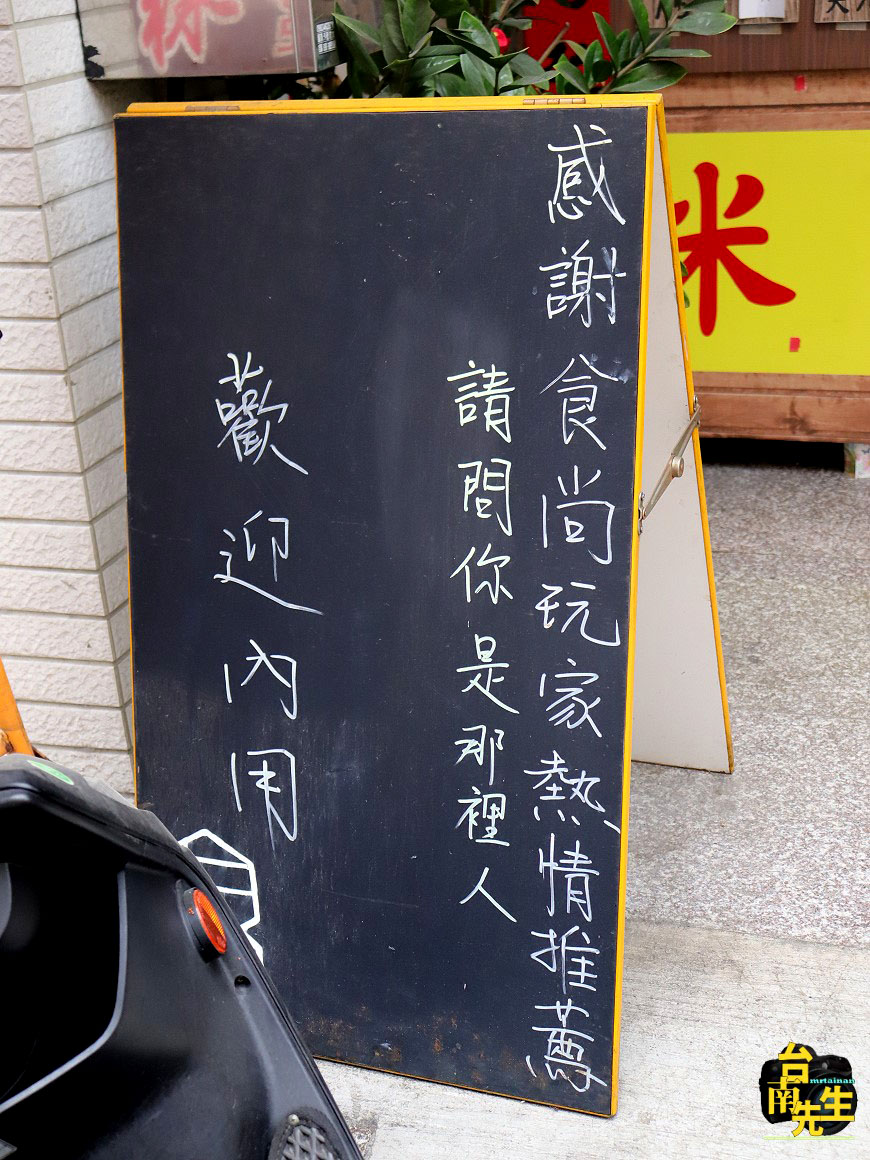 感謝食尚玩家熱情推薦
請問你是那裡人
歡迎內用
米
台南先生
mrtainan